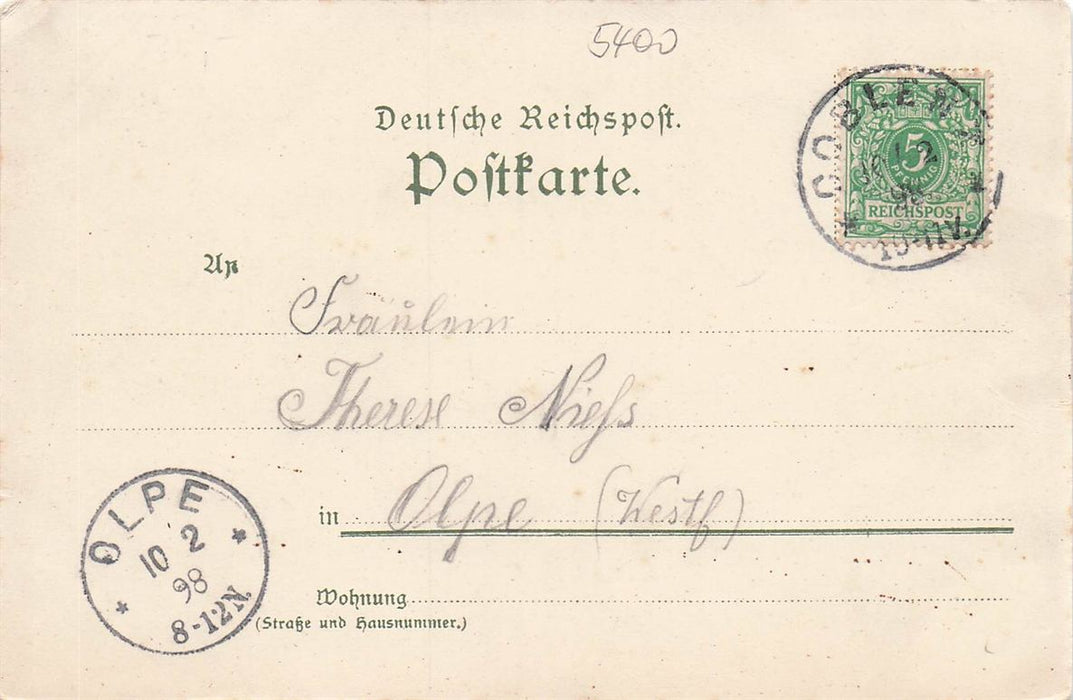 5400
Deutsche Reichspost.
Postkarte.
COBLENZ
5
PFENNIG
REICHSPOST
10 2
98
An
Fräulein
Therese Niess
in Olpe (Westf)
Wohnung
(Straße und Hausnummer.)
OLPE
10 2
98
8-12N.